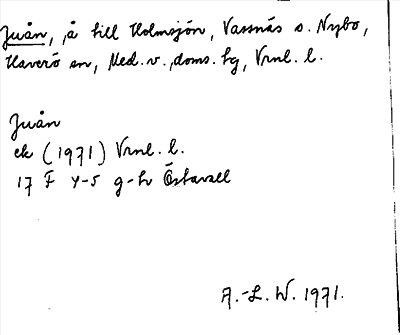 Juån, å till Holmsjön, Vassnäs o. Nybo,
Haverö sn, Med. v., doms. hg, Vrnl. l.
Juån
ek (1971) Vrnl. l.
17 F 4-5 g-h Östavall
A.-L. W. 1971.